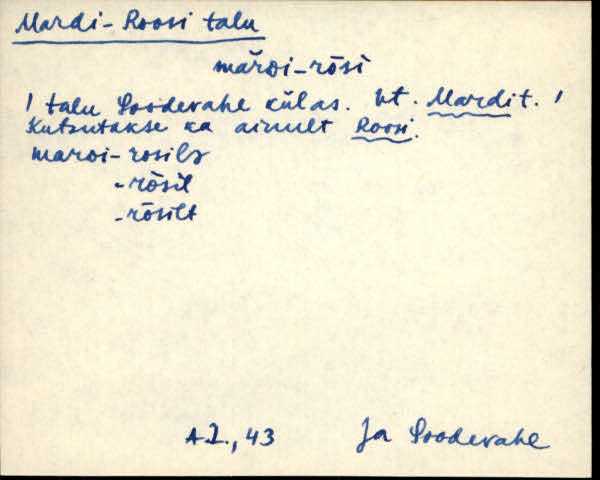 Mardi-Roosi talu
marDi-rōsi
/ talu Soodevahe külas. Vt. Mardit. /
Kutsutakse ka ainult Roosi.
marDi-rosilɜ
-rōsil
-rōsilt
A.Z., 43 Ja Soodevahe